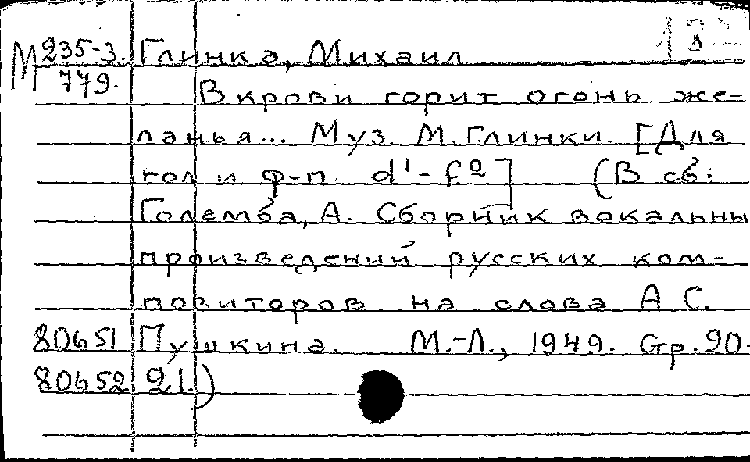 М 235-3 Глинка, Михаил
779. В крови горит огонь же-
ланья... Муз. М. Глинки. [Для
гол и ф-п. d¹-f²] (В сб:
Големба, А. Сборник вокальны
произведений русских ком-
позиторов на слова А С.
80651 Пушкина. М.-Л., 1949. Стр. 90-
80652 91.)